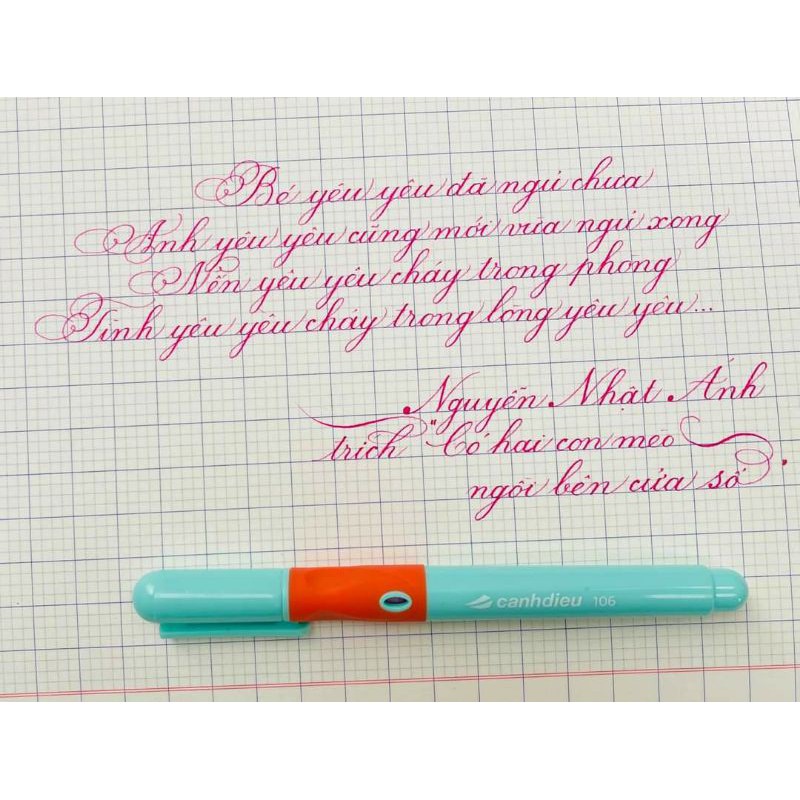 Bé yêu yêu đã ngủ chưa
Anh yêu yêu cũng mới vừa ngủ xong
Nến yêu yêu cháy trong phòng
Tình yêu yêu cháy trong lòng yêu yêu...
Nguyễn Nhật Ánh
trích "Có hai con mèo
ngồi bên cửa sổ".
canhdieu 106